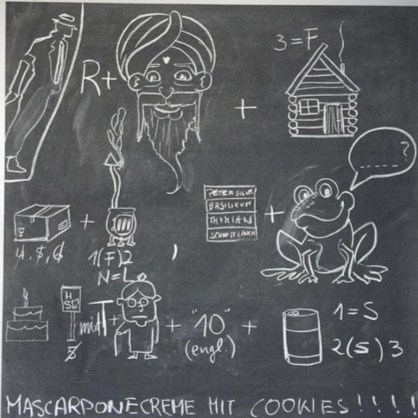 R+
+
3=F
?
PETERSILIE
BASILIKUM
THYMIAN
SCHNITTLAUCH
+
+
4,5,6
1(F)2
N=L
,
mit
+
+ "10" +
(engl.)
1=S
2(S)3
MASCARPONECREME MIT COOKIES!!!!